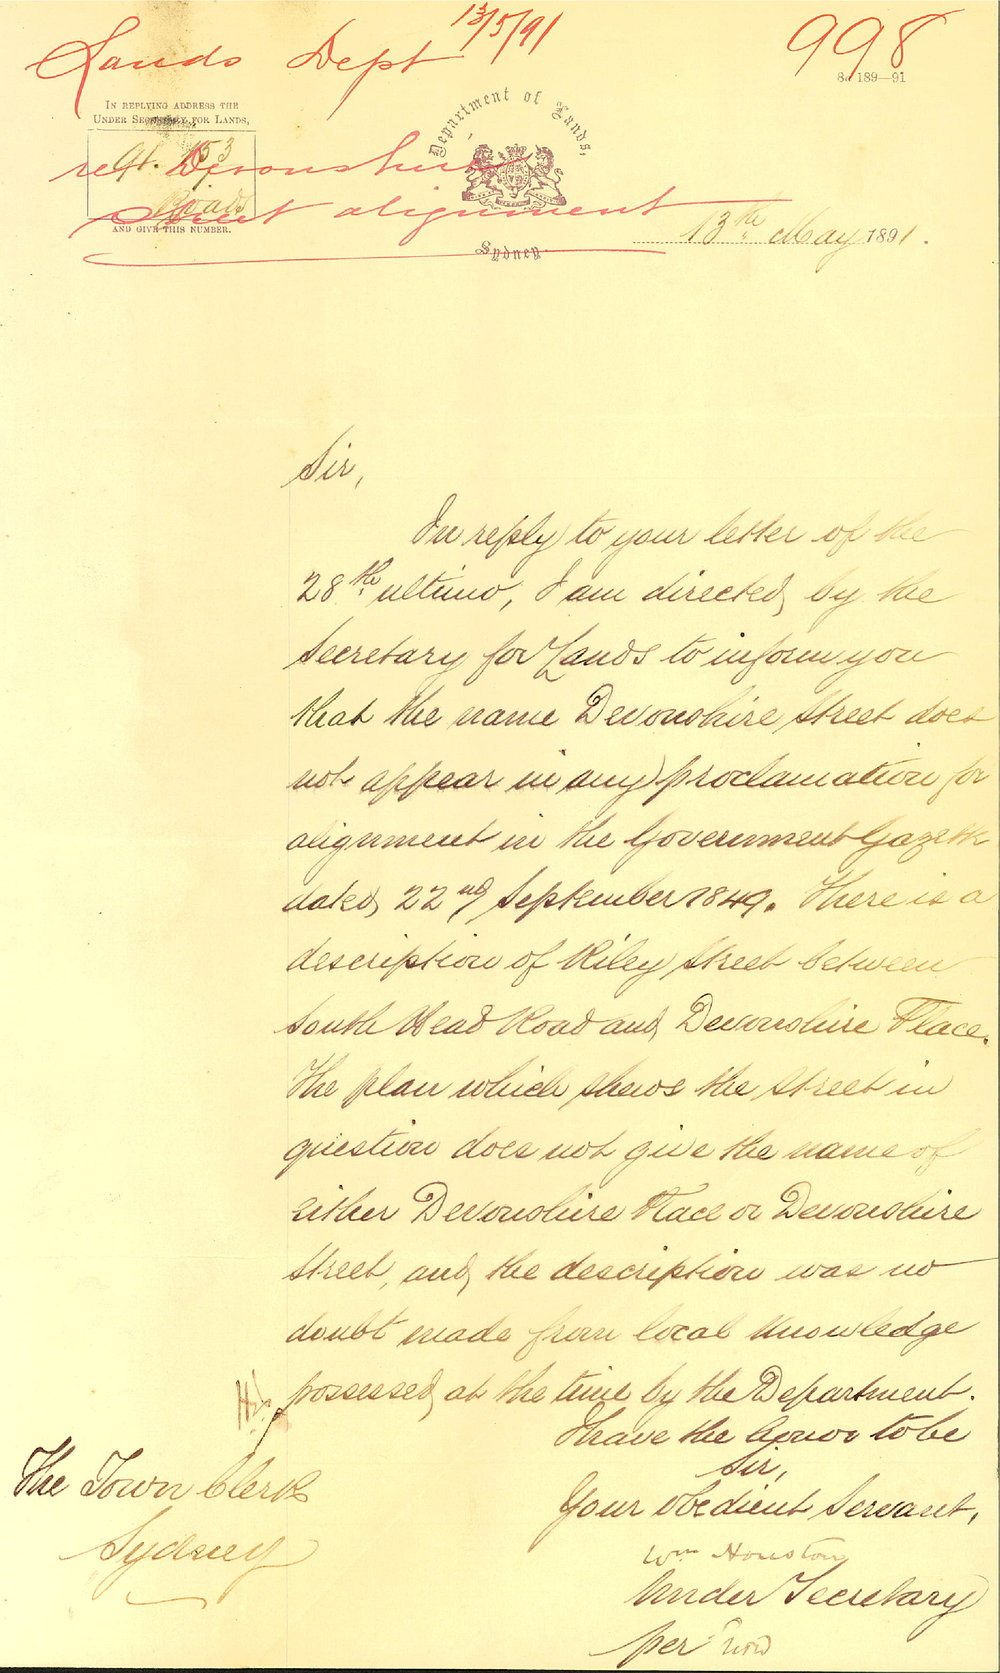 Lands Dept 13/5/91
998
8d 189—91
IN REPLYING ADDRESS THE
UNDER SECRETARY FOR LANDS,
91. 153
Roads
AND GIVE THIS NUMBER.
re Devonshire
Street alignment
Department of Lands,
Sydney
13th May 1891.
Sir,
In reply to your letter of the
28th ultimo, I am directed by the
Secretary for Lands to inform you
that the name Devonshire Street does
not appear in any proclamation for
alignment in the Government Gazette
dated 22nd September 1849. There is a
description of Riley Street between
South Head Road and Devonshire Place.
The plan which shews the street in
question does not give the name of
either Devonshire Place or Devonshire
Street, and the description was no
doubt made from local knowledge
possessed at the time by the Department.
I have the honor to be
Sir,
Your obedient Servant,
Wm Houston
Under Secretary
per
The Town Clerk
Sydney